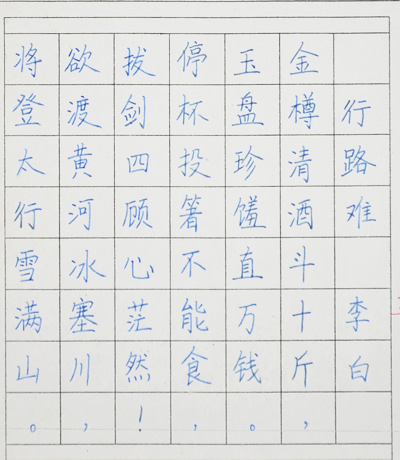 行路难 李白
金樽清酒斗十斤，
玉盘珍馐直万钱。
停杯投箸不能食，
拔剑四顾心茫然！
欲渡黄河冰塞川，
将登太行雪满山。